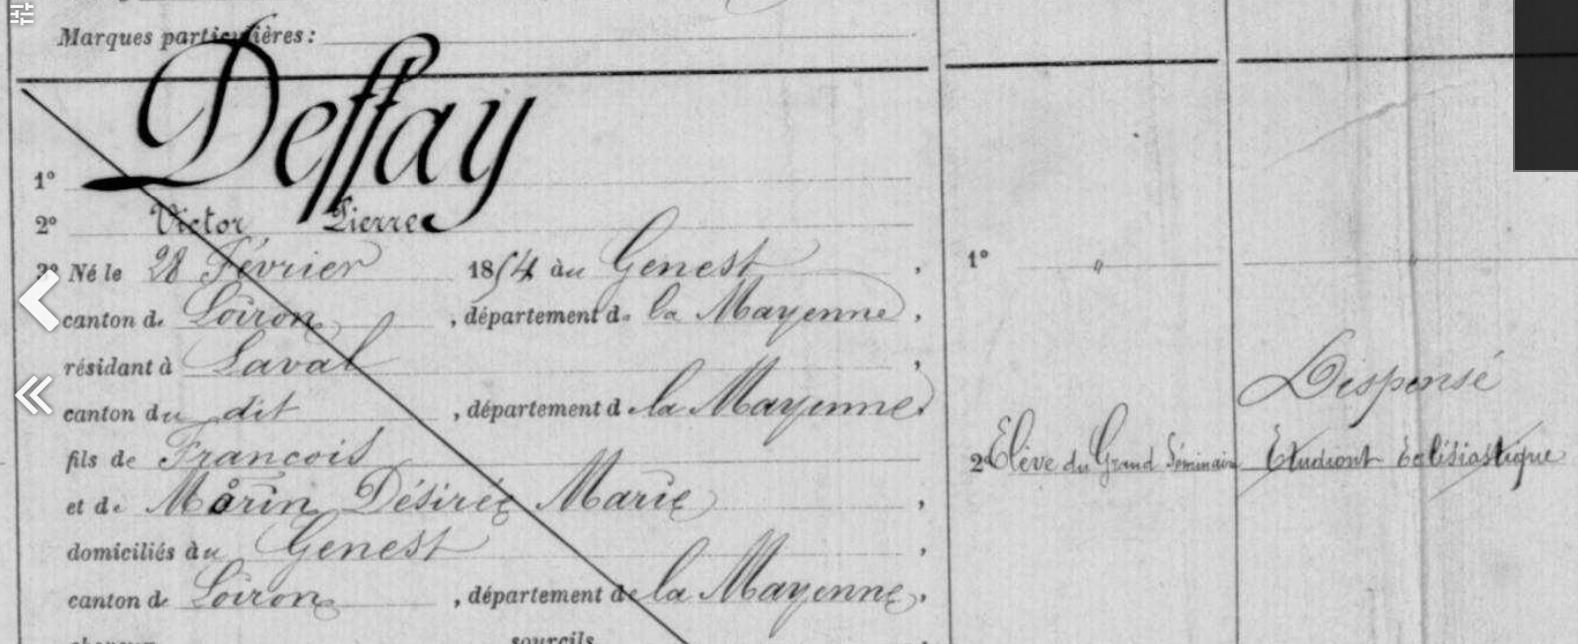 Marques particulières :
Deffay
1°
2° Victor Pierre
3° Né le 28 Février 1854 au Genest,
canton de Loiron, département de la Mayenne,
résidant à Laval,
canton du dit, département de la Mayenne.
fils de Francois
et de Morin Désirée Marie,
domiciliés au Genest,
canton de Loiron, département de la Mayenne,
sourcils
1° "
2° Elève du Grand Séminaire
"
Dispensé
Etudiant Eclésiastique